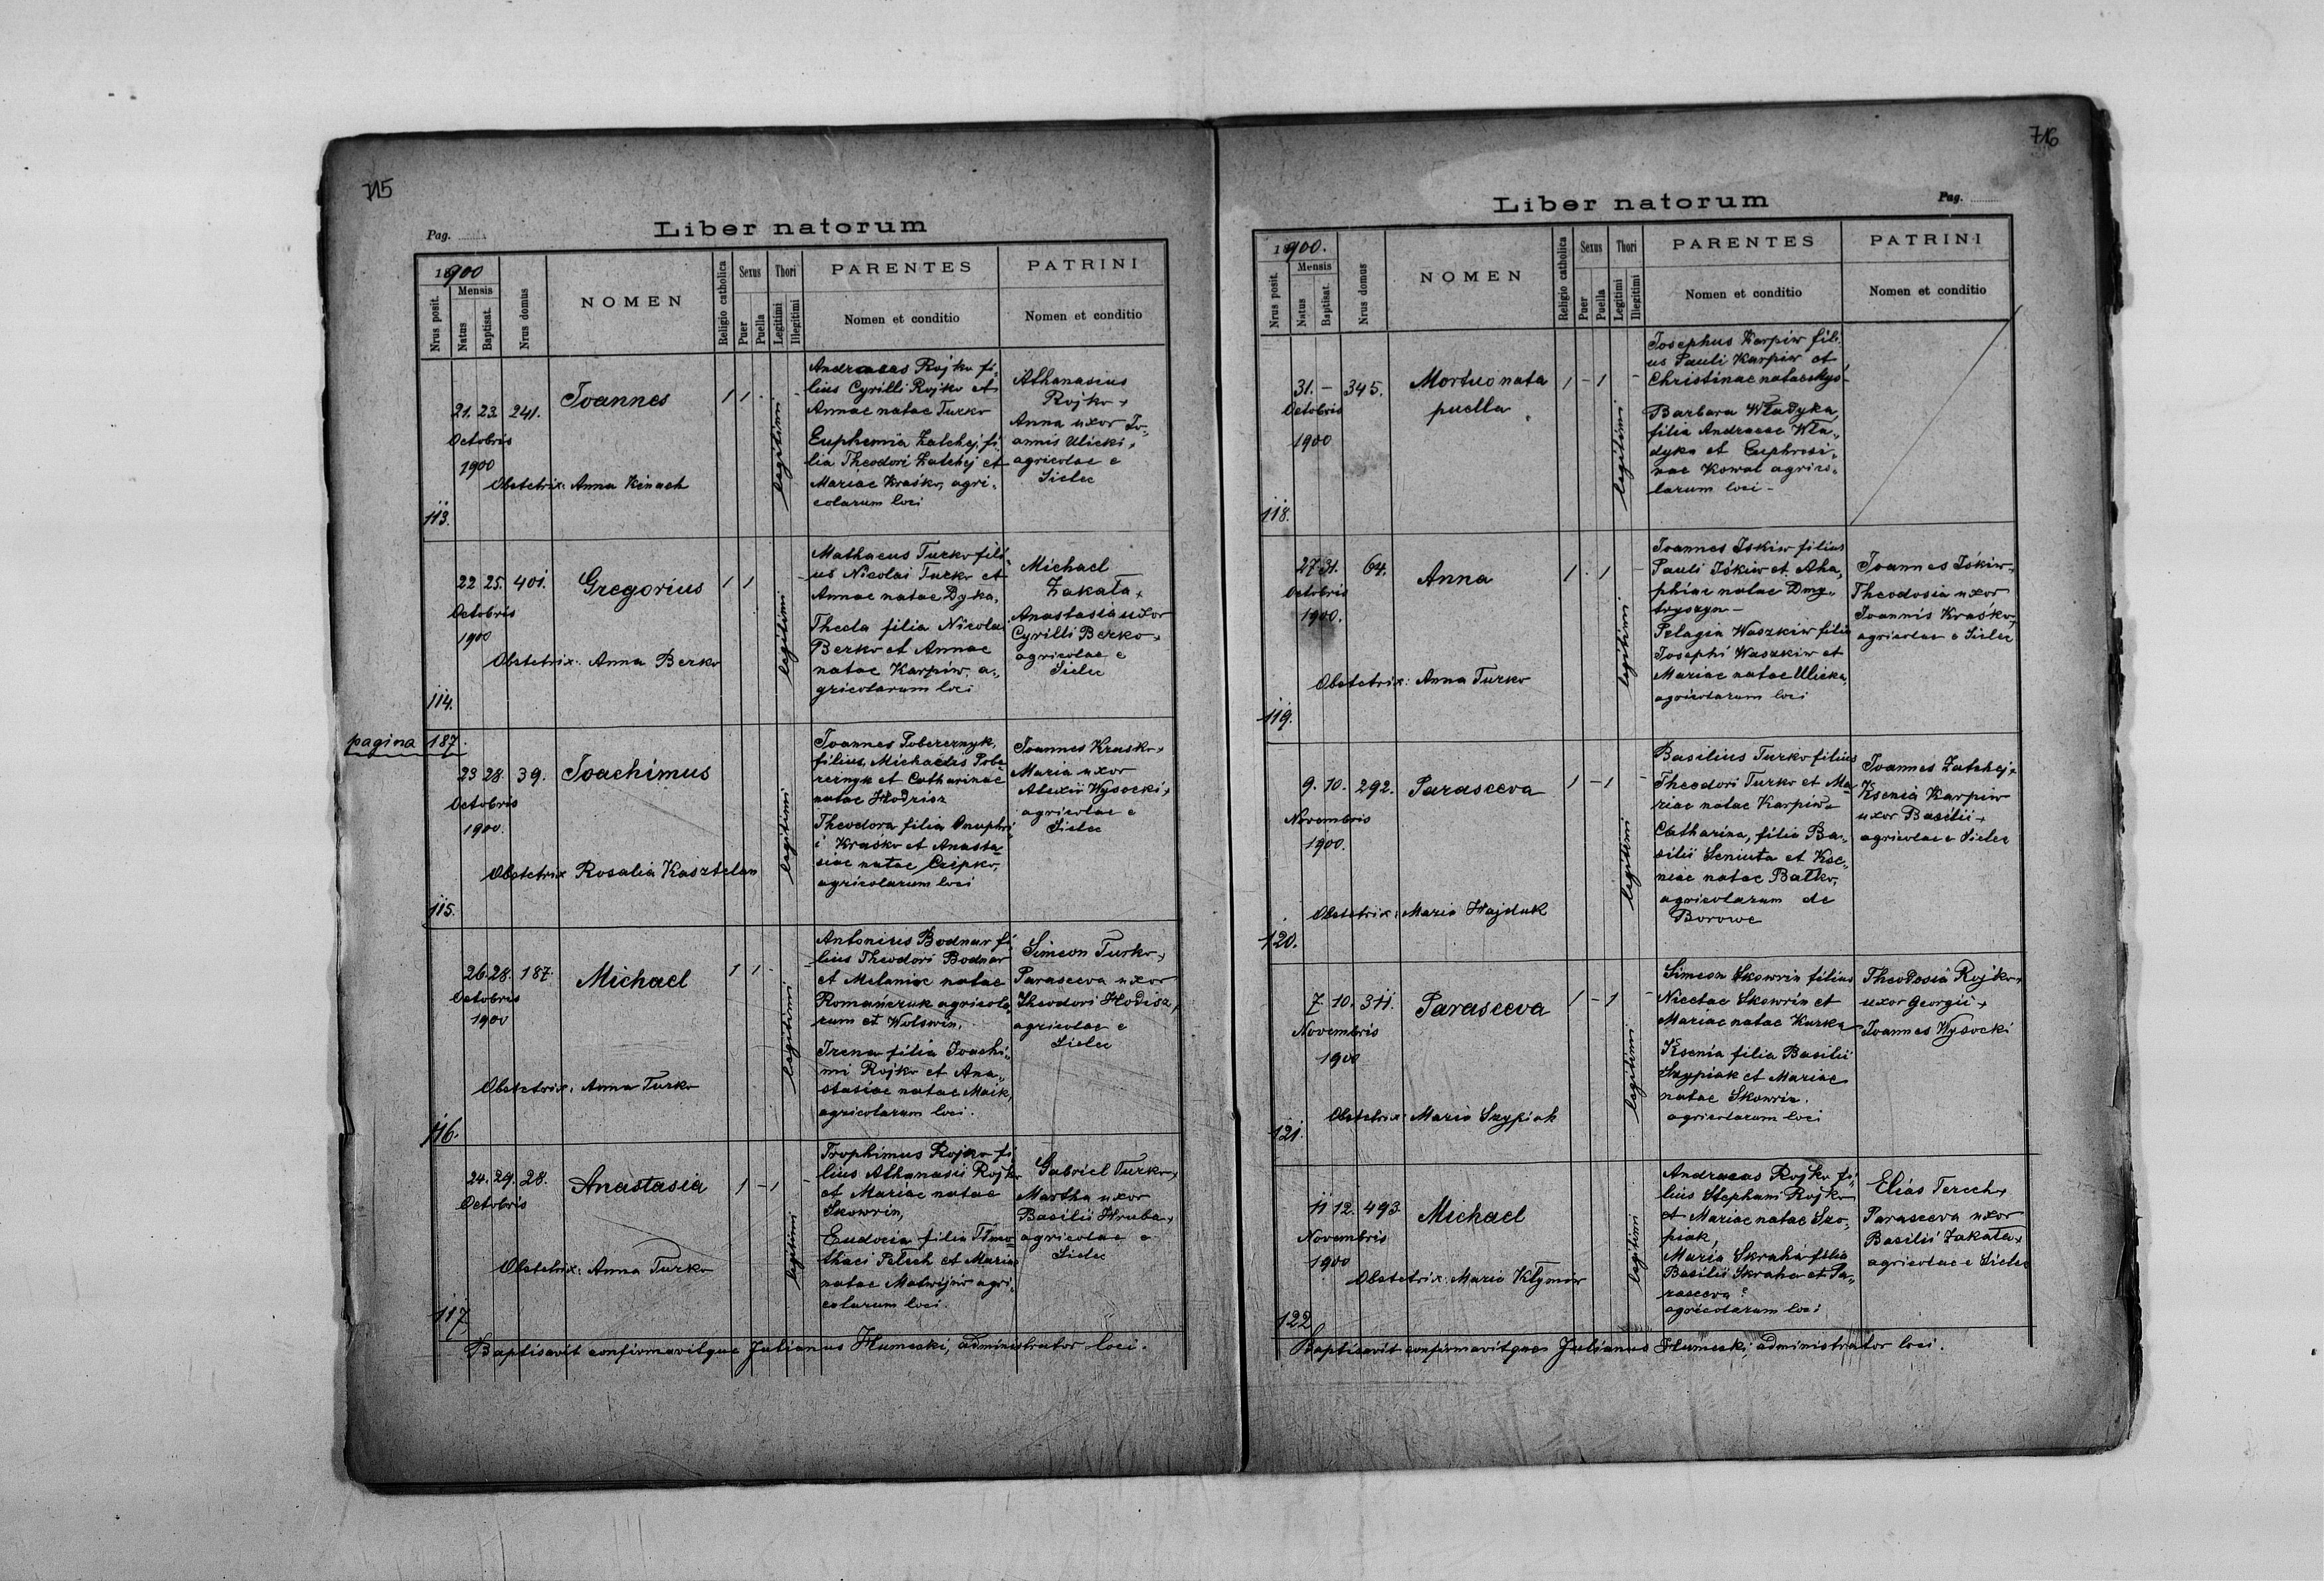 715
Liber natorum
Pag.
1900
Nrus posit.
Mensis
Natus
Baptisat.
Nrus domus
NOMEN
Religio catholica
Sexus
Puer
Puella
Thori
Legitimi
Illegitimi
PARENTES
Nomen et conditio
PATRINI
Nomen et conditio
113.
21. 23. 241.
Octobris
1900
Joannes
1 1 -
legitimi
Obstetrix: Anna Kinach
Andreas Rojko fi„
lius Cyrilli Rojko et
Annae natae Turko
Euphemia Zatchej, fi
lia Theodori Zatchej et
Mariae Kraśko, agri„
colarum loci
Athanasius
Rojko +
Anna uxor Jo„
annis Ulicki +
agricolae e
Sielec
114.
22 25. 401.
Octobris
1900
Gregorius
1 1
legitimi
Obstetrix: Anna Berko
Mathaeus Turko fili
us Nicolai Turko et
Annae natae Dyka,
Thecla filia Nicolai
Berko et Annae
natae Karpiw, a„
gricolarum loci
Michael
Zakała +
Anastasia uxor
Cyrilli Berko +
agricolae e
Sielec
pagina 187.
115.
23 28. 39.
Octobris
1900.
Joachimus
legitimi
Obstetrix Rosalia Kasztelan
Joannes Pobereznyk,
filius Michaelis Pobe
reznyk et Catharinae
natae Hodrisz
Theodora filia Onuphri
i Kraśko et Anasta„
siae natae Czipko,
agricolarum loci
Joannes Krasko +
Maria uxor
Alexii Wysocki +
agricolae e
Sielec
116.
26. 28. 187.
Octobris
1900
Michael
1 1 -
legitimi
Obstetrix: Anna Turko
Antonius Bodnar fi„
lius Theodori Bodnar
et Melaniae natae
Romańczuk agricola„
rum et Wolswin,
Irena filia Joachi„
mi Rojko et Ana„
stasiae natae Maik,
agricolarum loci.
Simeon Turko +
Parasceva uxor
Theodori Hodisz,
agricolae e
Sielec
117
24. 29. 28.
Octobris
Anastasia
1 - 1
legitimi
Obstetrix: Anna Turko
Trophimus Rojko fi„
lius Athanasii Rojko
et Mariae natae
Skowrin,
Eudocia filia Timo„
thaei Petech et Mariae
natae Matwijiw agri„
colarum loci.
Gabriel Turko +
Martha uxor
Basilii Hruba +
agricolae e
Sielec
Baptisavit confirmavitque Julianus Humecki, administrator loci.
716
Liber natorum
Pag.
1900.
Nrus posit.
Mensis
Natus
Baptisat.
Nrus domus
NOMEN
Religio catholica
Sexus
Puer
Puella
Thori
Legitimi
Illegitimi
PARENTES
Nomen et conditio
PATRINI
Nomen et conditio
118.
31. - 345.
Octobris
1900
Mortuo nata
puella
1 - 1 -
legitimi
Josephus Karpiw fili
us Pauli Karpiw et
Christinae natae
Barbara Władyka,
filia Andreae Wła„
dyka et Euphrosi„
nae Kowal agrico„
larum loci -
119.
27. 31. 64.
Octobris
1900.
Anna
1 . 1 -
legitimi
Obstetrix: Anna Turko
Joannes Iśkiw filius
Pauli Iśkiw et Aha„
phiae natae Dmy„
tryszyn -
Pelagia Waszkiw filia
Josephi Waszkiw et
Mariae natae Ulicka,
agricolarum loci
Joannes Iśkiw +
Theodosia uxor
Joannis Kraśko,
agricolae e Sielec
120.
9. 10. 292.
Novembris
1900.
Parasceva
1 - 1 -
legitimi
Obstetrix: Maria Hajduk
Basilius Turko filius
Theodori Turko et Ma
riae natae Karpiw
Catharina, filia Ba„
silii Seniuta et Kse„
niae natae Bałko,
agricolarum de
Borowe
Joannes Zatchej +
Ksenia Karpiw
uxor Basilii +
agricolae e Sielec
121.
7. 10. 311.
Novembris
1900
Parasceva
1 - 1 -
legitimi
Obstetrix: Maria Szypiak
Simeon Skowrin filius
Nicetae Skowrin et
Mariae natae Kurka
Ksenia filia Basilii
Szypiak et Mariae
natae Skowrin.
agricolarum loci
Theodosia Rojko +
uxor Georgii +
Joannes Wysocki
122
11 12. 493
Novembris
1900
Michael
legitimi
Obstetrix: Maria Kłymiw
Andreas Rojko fi„
lius Stephani Rojko
et Mariae natae Szo„
piak,
Maria Skraha filia
Basilii Skraha et Pa„
rasceva ?
agricolarum loci
Elias Terech +
Parasceva uxor
Basilii Zakała +
agricolae e Sielec
Baptisavit confirmavitque Julianus Humecki, administrator loci.